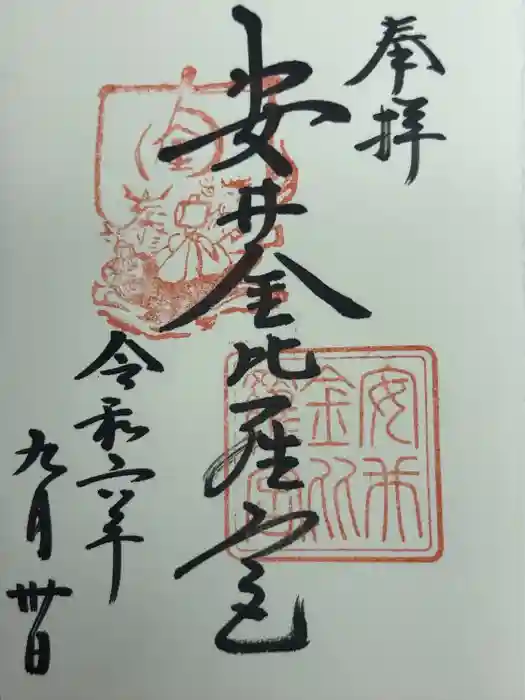 奉拝
安井金比羅宮
令和六年
九月卅日
安井金比羅宮
金